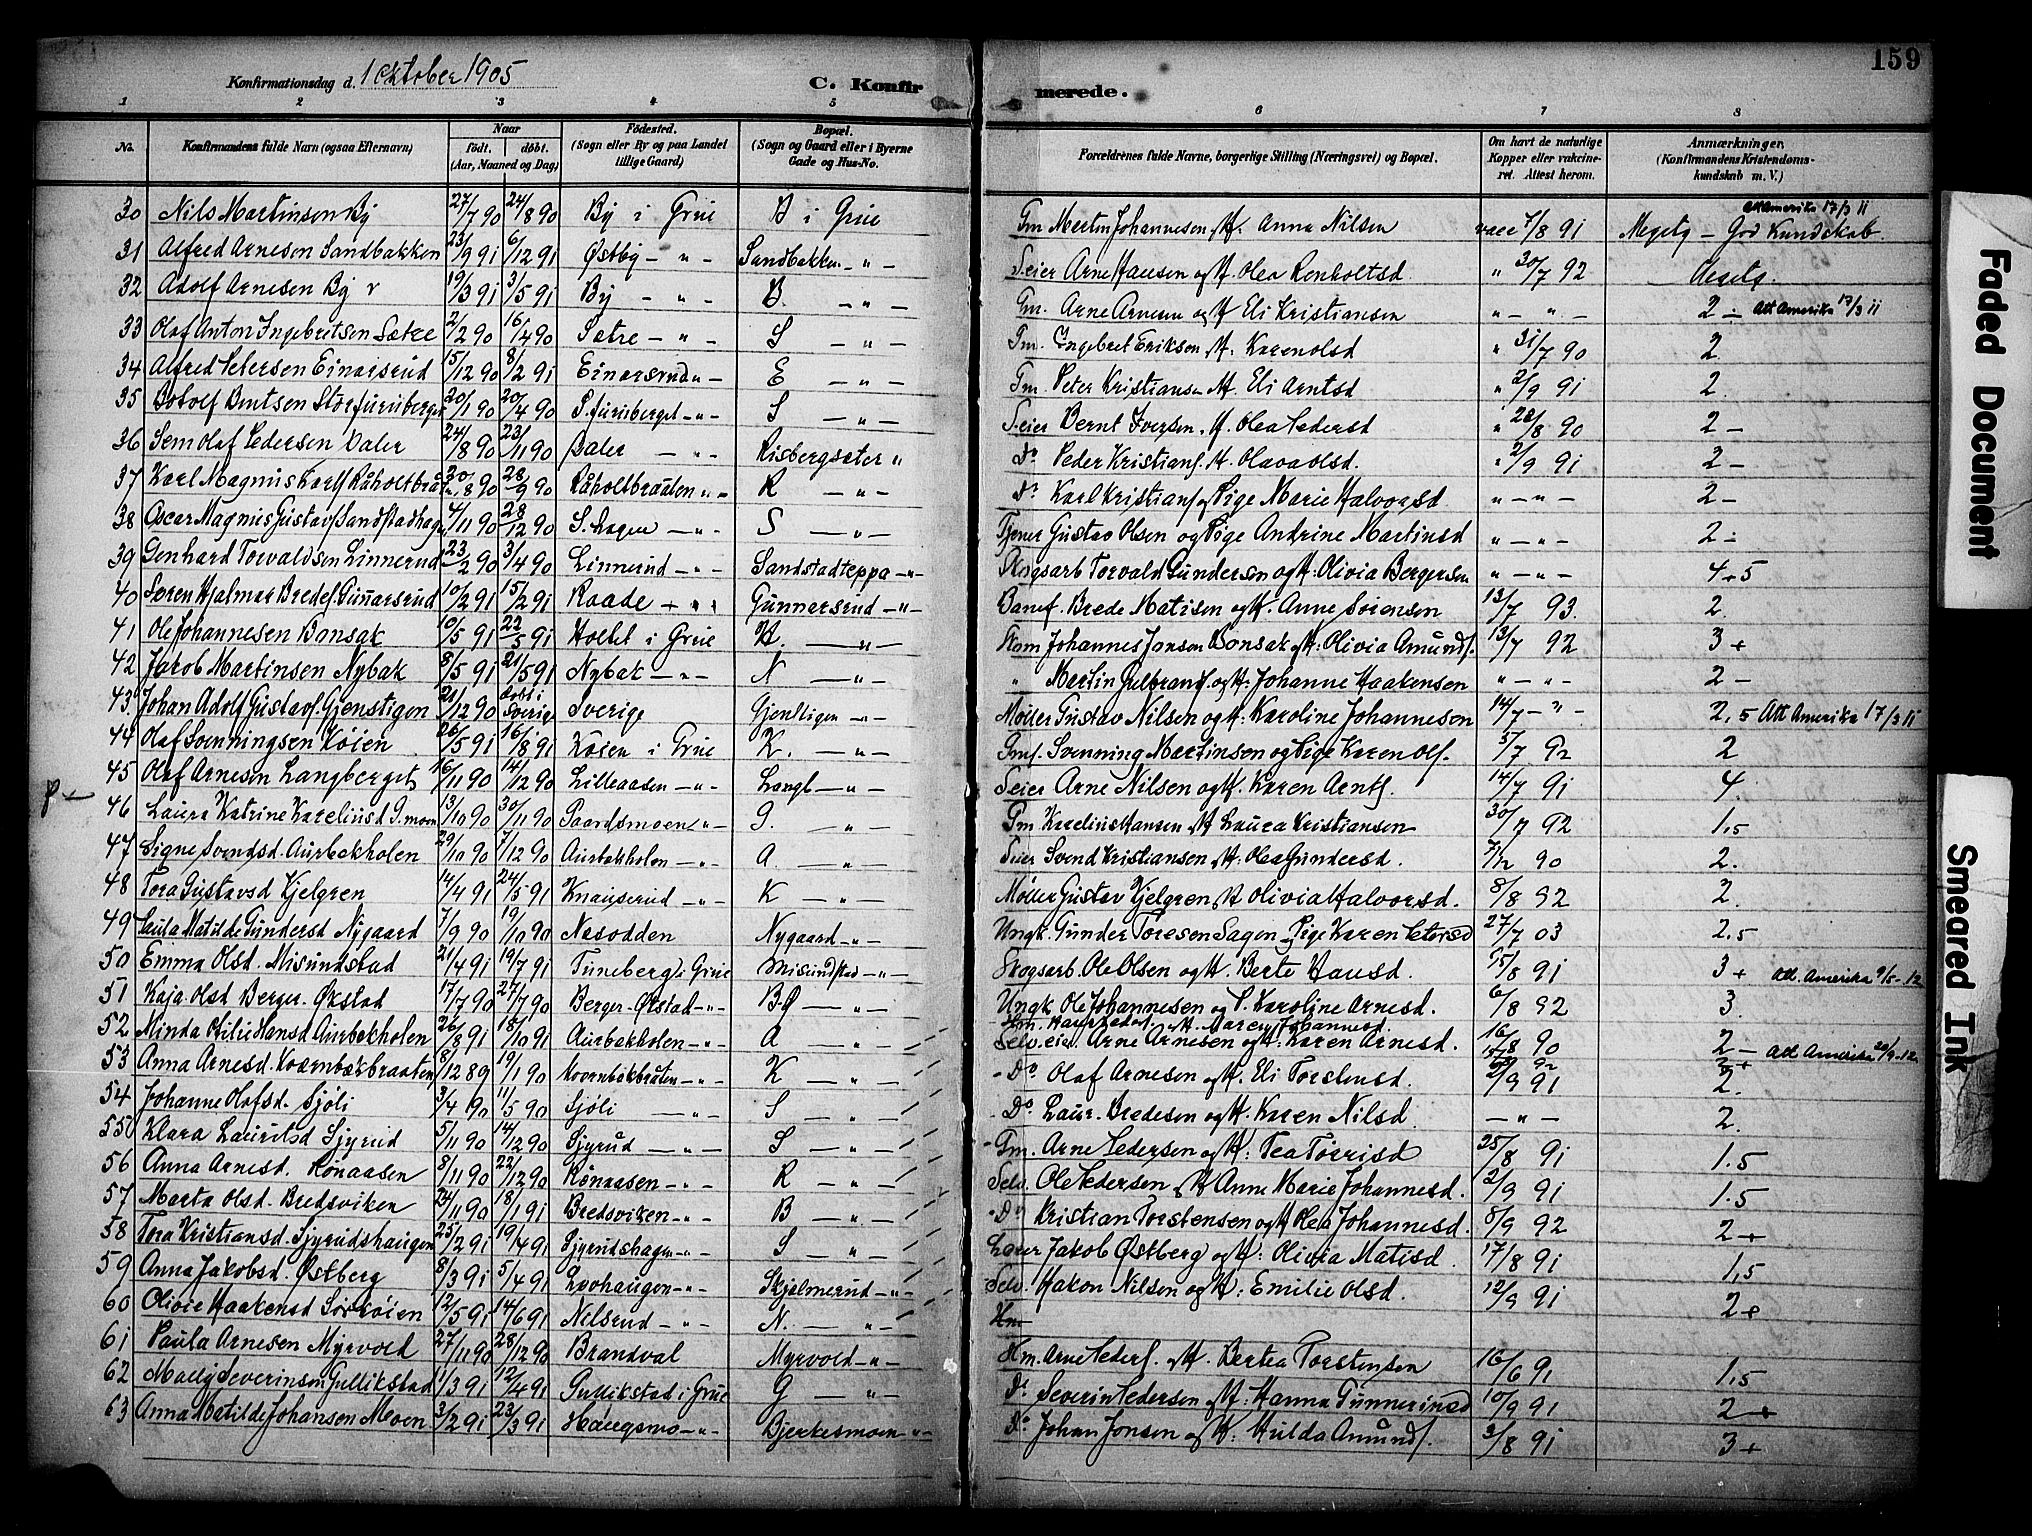 159
Konfirmationsdag d. 1 Oktober 1905
C. Konfir merede.
1 2 3 4 5 6 7 8
No.
Konfirmandens fulde Navn (ogsaa Efternavn)
Naar
født. døbt.
(Aar, Maaned og Dag)
Fødested.
(Sogn eller By og paa Landet
tillige Gaard)
Bopæl.
(Sogn og Gaard eller i Byerne
Gade og Hus-No.
Forældrenes fulde Navne, borgerlige Stilling (Næringsvei) og Bopæl.
Om havt de naturlige
Kopper eller vakcine-
ret. Attest herom.
Anmærkninger.
(Konfirmandens Kristendoms-
kundskab m. V.)
30 Nils Martinsen By 27/7 90 24/8 90 By i Grue B i Grue Gm Martin Johannesen, H. Anna Nilsen vacc 7/8 91 Megetg - God Kundskab. Att Amerika 17/3 11
31 Alfred Arnesen Sandbakken 23/9 91 6/12 91 Østby - " - Sandbakken - " - Seier Arne Hansen og H. Olea Renholtsd. " 30/7 92
32 Adolf Arnesen By 19/3 91 3/5 91 By - " - B. - " - Gm. Arne Arnesen og H Eli Kristiansen " - " - 2 - Att Amerika 17/3 11
33 Olaf Anton Ingebritsen Sætre 2/2 90 16/4 90 Sætre - " - S - " - Gm. Ingebret Eriksen, H: Karen Olsd " 31/7 90 2
34 Alfred Petersen Einarsrud 15/12 90 8/2 91 Einarsrud " - E - " - Gm. Peter Kristiansen H. Eli Arntsd " 2/9 91 2.
35 Botolf Berntsen Storfuruberget 20/1 90 20/4 90 S.furuberget - " - S - " - Seier Bernt Iversen, H. Olea Pedersd " 22/8 90 2 -
36 Sem Olaf Pedersen Daler 24/8 90 23/11 90 Daler - " - Risbergsæter " Do Peder Kristians. H. Olava Olsd. " 2/9 91 2 -
37 Karl Magnus Karls. Råholtbråt. 20/8 90 28/9 90 Råholtbraaten " - R - " - Do Karl Kristians og Pige Marie Halvorsd " - " - 2 -
38 Oscar Magnus Gustavs. Sandstadhagen 4/11 90 28/12 90 S.hagen - " - S - " - Tjener Gustav Olsen og Pige Andrine Martinsd " - " - 2 -
39 Genhard Torvaldsen Linnerud 23/2 90 3/4 90 Linnerud - " - Sandstadteppa - " - Skogsarb Torvald Gundersen og H: Olivia Bergersen " - " - 4+5
40 Søren Hjalmar Bredes. Gunnarsrud 10/2 91 15/2 91 Raade - " - Gunnarsrud - " - Banef. Brede Matisen og H. Anne Sørensen 13/7 93. 2.
41 Ole Johannesen Bonsak 10/5 91 22/5 91 Holtet i Grue H. - " - Skom Johannes Jonsen Bonsak og H: Olivia Amunds. 13/7 92 3+
42 Jakob Martinsen Nybak 8/5 91 21/5 91 Nybak - " - N - " - " Martin Gulbrands. og H: Johanne Haakensen " - " - 2 -
43 Johan Adolf Gustavs. Gjenstigen 21/12 90 døbt i Sverige Sverige Gjenstigen - " - Møller Gustav Nilsen og H: Karoline Johannesen 14/7 - " - 2,5 Att Amerika 17/3 11
44 Olaf Svenningsen Køien 26/5 91 16/8 91 Køien i Grue K. - " - Gms. Svenning Martinsen og Pige Karen Ols. 5/7 92 2
45 Olaf Arnesen Langberget 16/11 90 14/12 90 Lilleaasen - " - Langb - " - Seier Arne Nilsen og H. Karen Arnts. 14/7 91 4.
46 Laura Katrine Karelinsd G.moen 13/10 90 30/11 90 Gaardsmoen " - G. - " - Gm Karelius Hansen, H Laura Kristiansen 30/7 92 1,5
47 Signe Svendsd. Aurbekholen 29/10 90 7/12 90 Aurbekholen - " - A. - " - Seier Svend Kristiansen, H: Olea Gundersd. 7/12 90 2.
48 Tora Gustavsd Kjelgren 14/4 91 24/5 91 Knauserud - " - K - " - Møller Gustav Kjelgren, H Olivia Halvorsd. 8/8 92 2.
49 Paula Matilde Gundersd Nygaard 7/9 90 19/10 90 Nasodden Nygaard - " - Ungk. Gunder Toresen Sagen - Pige Karen Petersd 27/7 03 2.5
50 Emma Olsd. Misundstad 21/4 91 19/7 91 Tuneberg i Grue Misundstad - " - Skogsarb. Ole Olsen og H. Berte Hansd. 15/8 91 3+ Att. Amerika 9/5 - 12
51 Kaja Olsd Berger. Økstad 17/7 90 27/7 90 Berger - Økstad - " - BØ - " - Ungk Ole Johannesen og P. Karoline Arnesd. 6/8 92 3.
52 Minda Otilie Hansd Aurbekholen 26/8 91 18/10 91 Aurbekholen - " - A - " - Hm. Hans Peders. H. Maren Johannesd.
53 Anna Arnesd. Kværnbækbraaten 8/12 89 19/1 90 Kvernbækbråten - " - K - " - Selv.eier Arne Arnesen og H. Karen Arnesd. 16/8 90 2 - Att Amerika 20/9 - 12
54 Johanne Olafsd. Sjøli 3/4 90 11/5 90 Sjöli - " - S - " - - Do Olaf Arnesen og H. Eli Torstensd. 2/9 91 2.
55 Klara Lauritsd Sjyrud 5/11 90 14/12 90 Sjyrud - " - S - " - - Do Laur. Bredesen og H. Karen Nilsd. - " - 2.
56 Anna Arnesd. Rønaasen 8/11 90 22/12 90 Rønaasen - " - R - " - - Gm. Arne Pedersen og H: Tea Tørrisd 25/8 91 1.5
57 Marta Olsd. Bredsviken 24/11 90 18/1 91 Bredsviken - " - B - " - Selv. Ole Pedersen, H Anne Marie Johannesd. 2/9 91 1.5
58 Tora Kristiansd. Sjyrudshaugen 25/2 91 19/4 91 Sjyrudshagen - " - S - " - - Do Kristian Torstensen og H Olea Johannesd. 8/9 92 2+
59 Anna Jakobsd. Østberg 8/3 91 5/4 91 Lvohaugen - " - Skjølmerud - " - Lærer Jakob Østberg og H: Olivia Matisd. 17/8 91 1,5
60 Olivie Haakensd Sørkøien 12/5 91 14/6 91 Nilsrud - " - N. - " - Selv. Hakon Nilsen og H: Emilie Olsd. 12/9 91 2+
Hm
61 Paula Arnesen Myrvold 27/11 90 28/12 90 Brandval Myrvold - " - Hm. Arne Peders. og H. Bertea Torstensen 16/6 91 1,5
62 Mally Severinsen Gullikstad 1/3 91 12/4 91 Gullikstad i Grue G - " - Do Severin Pedersen og H. Hanna Gunnerinsd 10/9 91 2+
63 Anna Matilde Johansen Moen 3/2 91 23/3 91 Haugsmo - " - Bjerkesmoen " - Do Johan Jonsen og H. Hulda Amunds. 3/8 91 3+
Faded Document
Smeared Ink